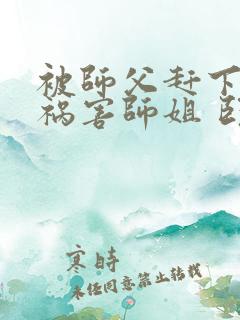 被師父赶下
祸害師姐
寒時
未任同意禁止转载